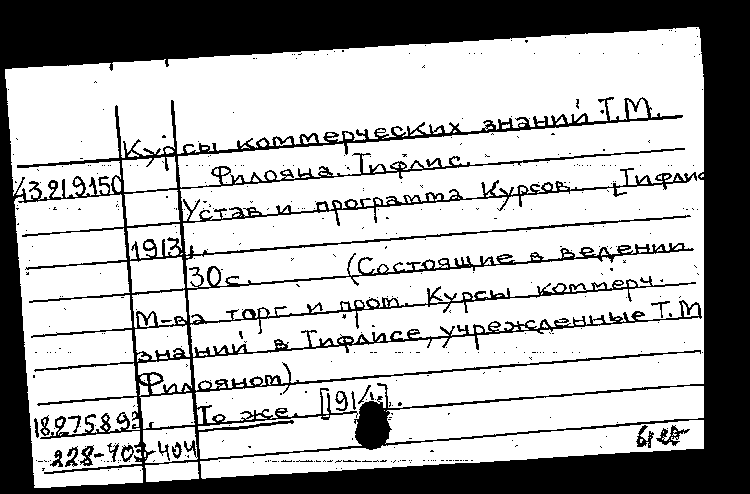 Курсы коммерческих знаний Т.М.
Филояна. Тифлис.
43.21.9.150
Устав и программа Курсов. [Тифлис
1913].
30с. (Состоящие в ведении
М-ва торг. и пром. Курсы коммерч.
знаний в Тифлисе, учрежденные Т.М
Филояном).
18.275.8.93. То же. [1914].
228-403-404